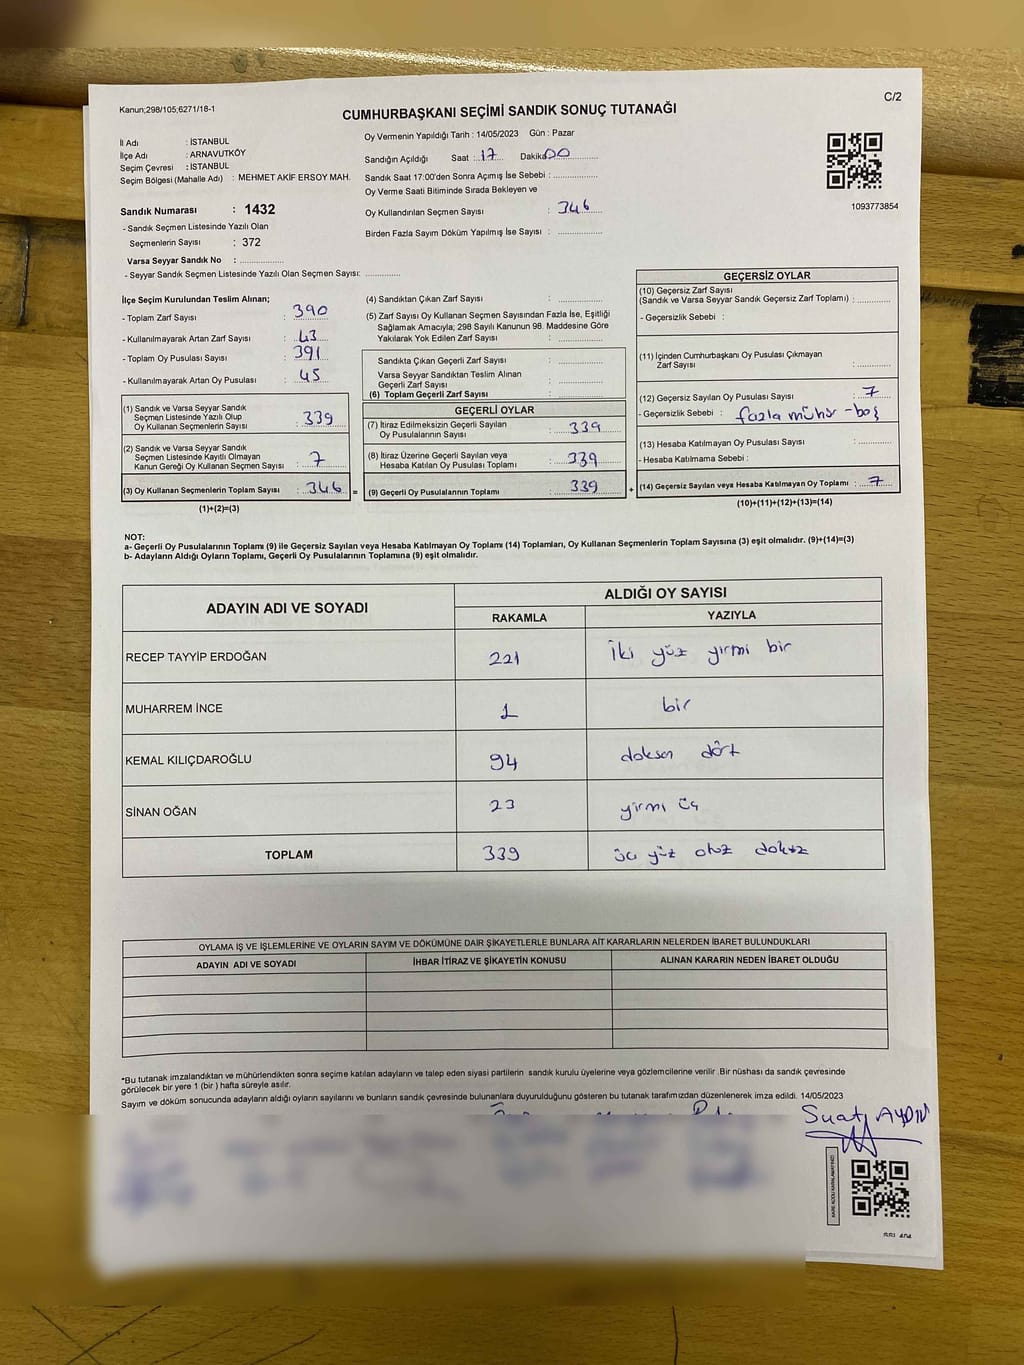 Kanun;298/105,6271/18-1
C/2
CUMHURBAŞKANI SEÇİMİ SANDIK SONUÇ TUTANAĞI
İl Adı : İSTANBUL
İlçe Adı : ARNAVUTKÖY
Seçim Çevresi : İSTANBUL
Seçim Bölgesi (Mahalle Adı) : MEHMET AKİF ERSOY MAH.
Sandık Numarası : 1432
- Sandık Seçmen Listesinde Yazılı Olan
Seçmenlerin Sayısı : 372
Varsa Seyyar Sandık No : ..............
- Seyyar Sandık Seçmen Listesinde Yazılı Olan Seçmen Sayısı: ..............
Oy Vermenin Yapıldığı Tarih : 14/05/2023 Gün : Pazar
Sandığın Açıldığı Saat : 17 Dakika 00
Sandık Saat 17:00'den Sonra Açımış İse Sebebi : ..............
Oy Verme Saati Bitiminde Sırada Bekleyen ve
Oy Kullandırılan Seçmen Sayısı : 346
Birden Fazla Sayım Döküm Yapılmış İse Sayısı : ..............
1093773854
İlçe Seçim Kurulundan Teslim Alınan;
- Toplam Zarf Sayısı : 390
- Kullanılmayarak Artan Zarf Sayısı : 43
- Toplam Oy Pusulası Sayısı : 391
- Kullanılmayarak Artan Oy Pusulası : 45
(1) Sandık ve Varsa Seyyar Sandık
Seçmen Listesinde Yazılı Olup
Oy Kullanan Seçmenlerin Sayısı : 339
(2) Sandık ve Varsa Seyyar Sandık
Seçmen Listesinde Kayıtlı Olmayan
Kanun Gereği Oy Kullanan Seçmen Sayısı : 7
(3) Oy Kullanan Seçmenlerin Toplam Sayısı : 346 =
(1)+(2)=(3)
(4) Sandıktan Çıkan Zarf Sayısı : ..............
(5) Zarf Sayısı Oy Kullanan Seçmen Sayısından Fazla İse, Eşitliği
Sağlamak Amacıyla; 298 Sayılı Kanunun 98. Maddesine Göre
Yakılarak Yok Edilen Zarf Sayısı : ..............
Sandıkta Çıkan Geçerli Zarf Sayısı : ..............
Varsa Seyyar Sandıktan Teslim Alınan
Geçerli Zarf Sayısı : ..............
(6) Toplam Geçerli Zarf Sayısı : ..............
GEÇERLİ OYLAR
(7) İtiraz Edilmeksizin Geçerli Sayılan
Oy Pusulalarının Sayısı : 339
(8) İtiraz Üzerine Geçerli Sayılan veya
Hesaba Katılan Oy Pusulası Toplamı : 339
(9) Geçerli Oy Pusulalarının Toplamı : 339 +
GEÇERSİZ OYLAR
(10) Geçersiz Zarf Sayısı
(Sandık ve Varsa Seyyar Sandık Geçersiz Zarf Toplamı) : ..............
- Geçersizlik Sebebi :
(11) İçinden Cumhurbaşkanı Oy Pusulası Çıkmayan
Zarf Sayısı : ..............
(12) Geçersiz Sayılan Oy Pusulası Sayısı : 7
- Geçersizlik Sebebi : fazla mühür - boş
(13) Hesaba Katılmayan Oy Pusulası Sayısı : ..............
- Hesaba Katılmama Sebebi :
(14) Geçersiz Sayılan veya Hesaba Katılmayan Oy Toplamı : 7
(10)+(11)+(12)+(13)=(14)
NOT:
a- Geçerli Oy Pusulalarının Toplamı (9) ile Geçersiz Sayılan veya Hesaba Katılmayan Oy Toplamı (14) Toplamları, Oy Kullanan Seçmenlerin Toplam Sayısına (3) eşit olmalıdır. (9)+(14)=(3)
b- Adayların Aldığı Oyların Toplamı, Geçerli Oy Pusulalarının Toplamına (9) eşit olmalıdır.
ADAYIN ADI VE SOYADI ALDIĞI OY SAYISI
RAKAMLA YAZIYLA
RECEP TAYYİP ERDOĞAN 221 İki yüz yirmi bir
MUHARREM İNCE 1 bir
KEMAL KILIÇDAROĞLU 94 doksan dört
SİNAN OĞAN 23 yirmi üç
TOPLAM 339 üç yüz otuz dokuz
OYLAMA İŞ VE İŞLEMLERİNE VE OYLARIN SAYIM VE DÖKÜMÜNE DAİR ŞİKAYETLERLE BUNLARA AİT KARARLARIN NELERDEN İBARET BULUNDUKLARI
ADAYIN ADI VE SOYADI İHBAR İTİRAZ VE ŞİKAYETİN KONUSU ALINAN KARARIN NEDEN İBARET OLDUĞU
*Bu tutanak imzalandıktan ve mühürlendikten sonra seçime katılan adayların ve talep eden siyasi partilerin sandık kurulu üyelerine veya gözlemcilerine verilir .Bir nüshası da sandık çevresinde
görülecek bir yere 1 (bir ) hafta süreyle asılır.
Sayım ve döküm sonucunda adayların aldığı oyların sayılarını ve bunların sandık çevresinde bulunanlara duyurulduğunu gösteren bu tutanak tarafımızdan düzenlenerek imza edildi. 14/05/2023
Suat AYDIN